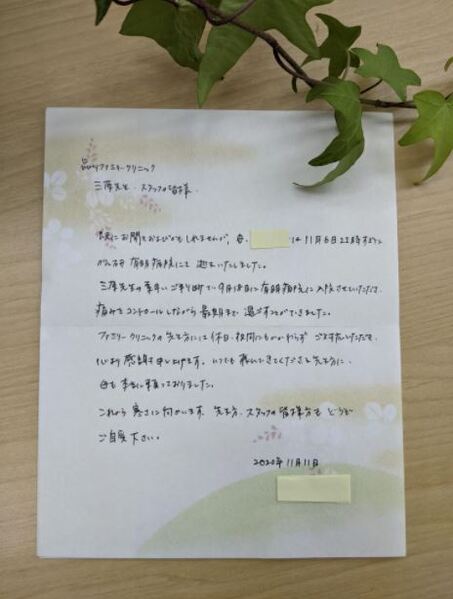 品川ファミリークリニック
三澤先生・スタッフの皆様
既にお聞きおよびかもしれませんが、母、 は11月6日22時すぎに
がん研有明病院にて逝きいたしました。
三澤先生の素早いご判断で9月18日に有明病院に入院させていただき、
痛みをコントロールしながら最期まで過ごすことができました。
ファミリークリニックの先生方には休日・夜間にもかかわらずご対応いただいた事、
心より感謝を申し上げます。いつでも飛んできてくださる先生方に、
母も本当に頼っておりました。
これから寒さに向かいます。先生方、スタッフの皆様方もどうぞ
ご自愛下さい。
2020年11月11日